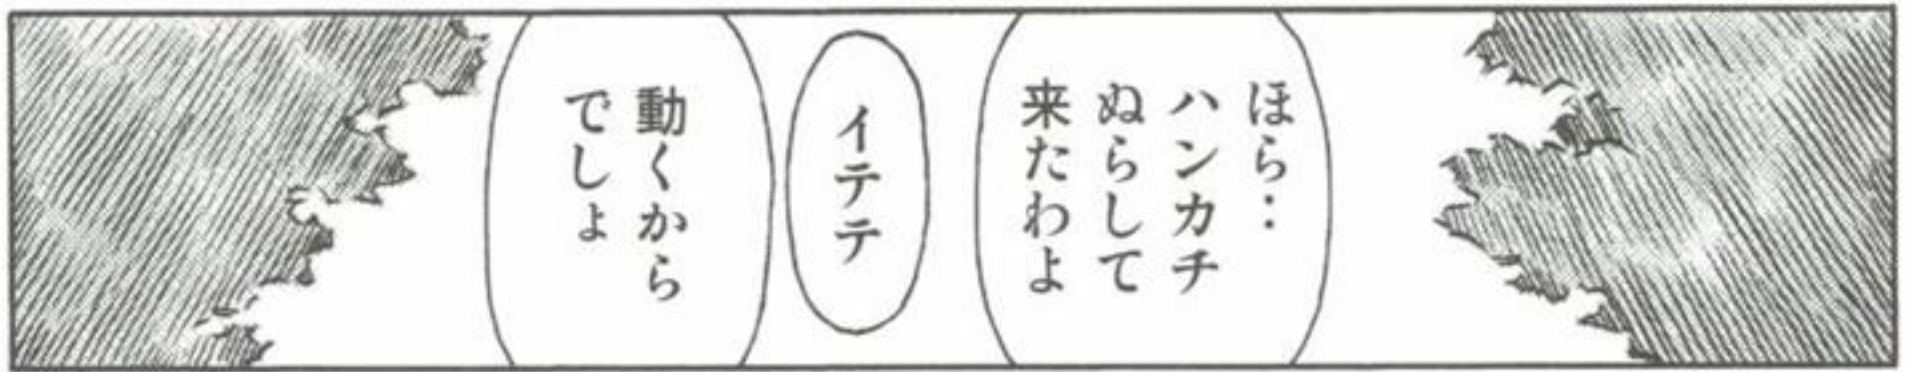 ほら‥
ハンカチ
ぬらして
来たわよ
イテテ
動くから
でしょ